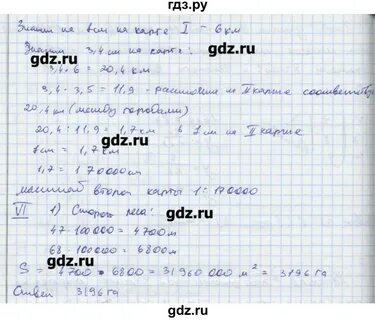 гдз.ру
Значит на 1см на карте I - 6 км
Значит 3,4 см на карте:
3,4 · 6 = 20,4 км
3,4 · 3,5 = 11,9 - расстояние на II карте соответств
20,4 км (между городами)
20,4 : 11,9 = 1,7 км в 1 см на II карте
1 см = 1,7 км
1,7 = 170000 см
масштаб второй карты 1:170000
VI 1) Сторон леса:
47 · 100000 = 4700 м
68 · 100000 = 6800 м
S = 4700 · 6800 = 31960 000 м² = 3196 га
Ответ 3196 га
gdz.ru
gdz.ru
gdz.ru
gdz.ru
gdz.ru
gdz.ru